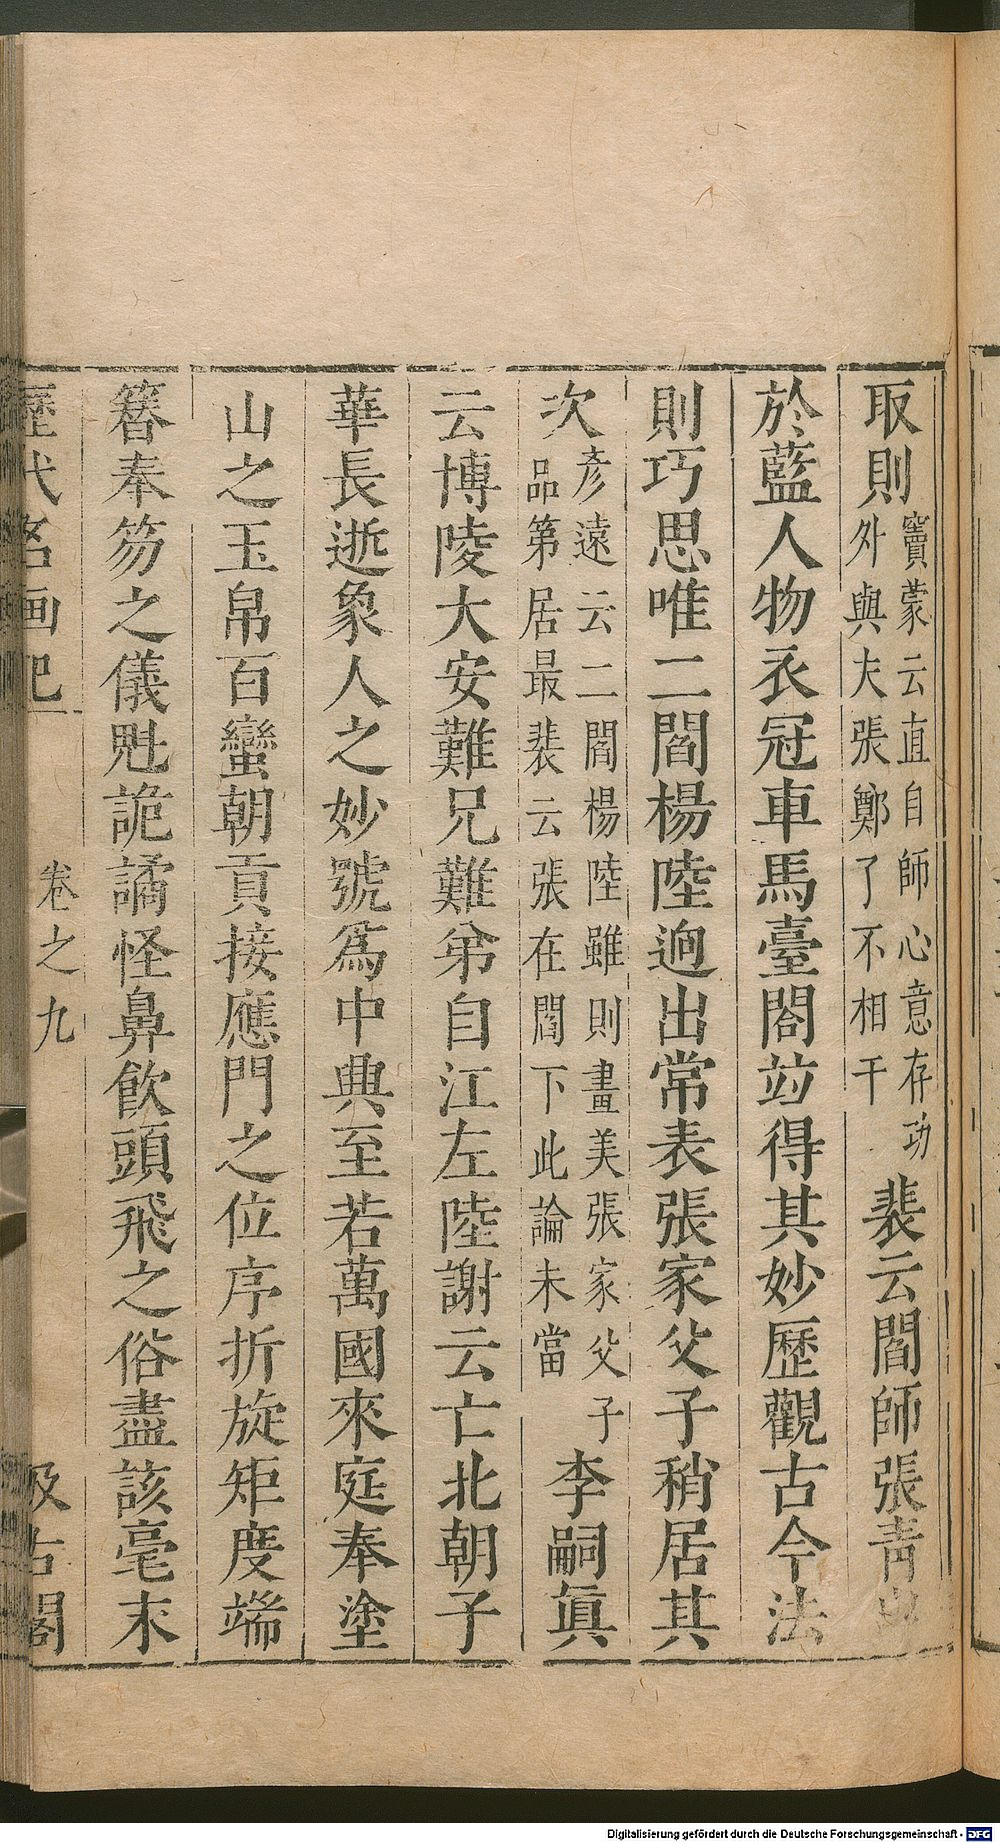 取則竇蒙云直自師心意存功外與夫張鄭了不相干裴云閻師張青出
於藍人物衣冠車馬臺閣竝得其妙歷觀古今法
則巧思唯二閻楊陸逈出常表張家父子稍居其
次彥遠云二閻楊陸雖則畫美張家父子品第居最裴云張在閻下此論未當李嗣眞
云博陵大安難兄難弟自江左陸謝云亡北朝子
華長逝象人之妙號爲中興至若萬國來庭奉塗
山之玉帛百蠻朝貢接應門之位序折旋矩度端
簪奉笏之儀魁詭譎怪鼻飲頭飛之俗盡該毫末
歷代名画記 卷之九 汲古閣
Digitalisierung gefördert durch die Deutsche Forschungsgemeinschaft - DFG